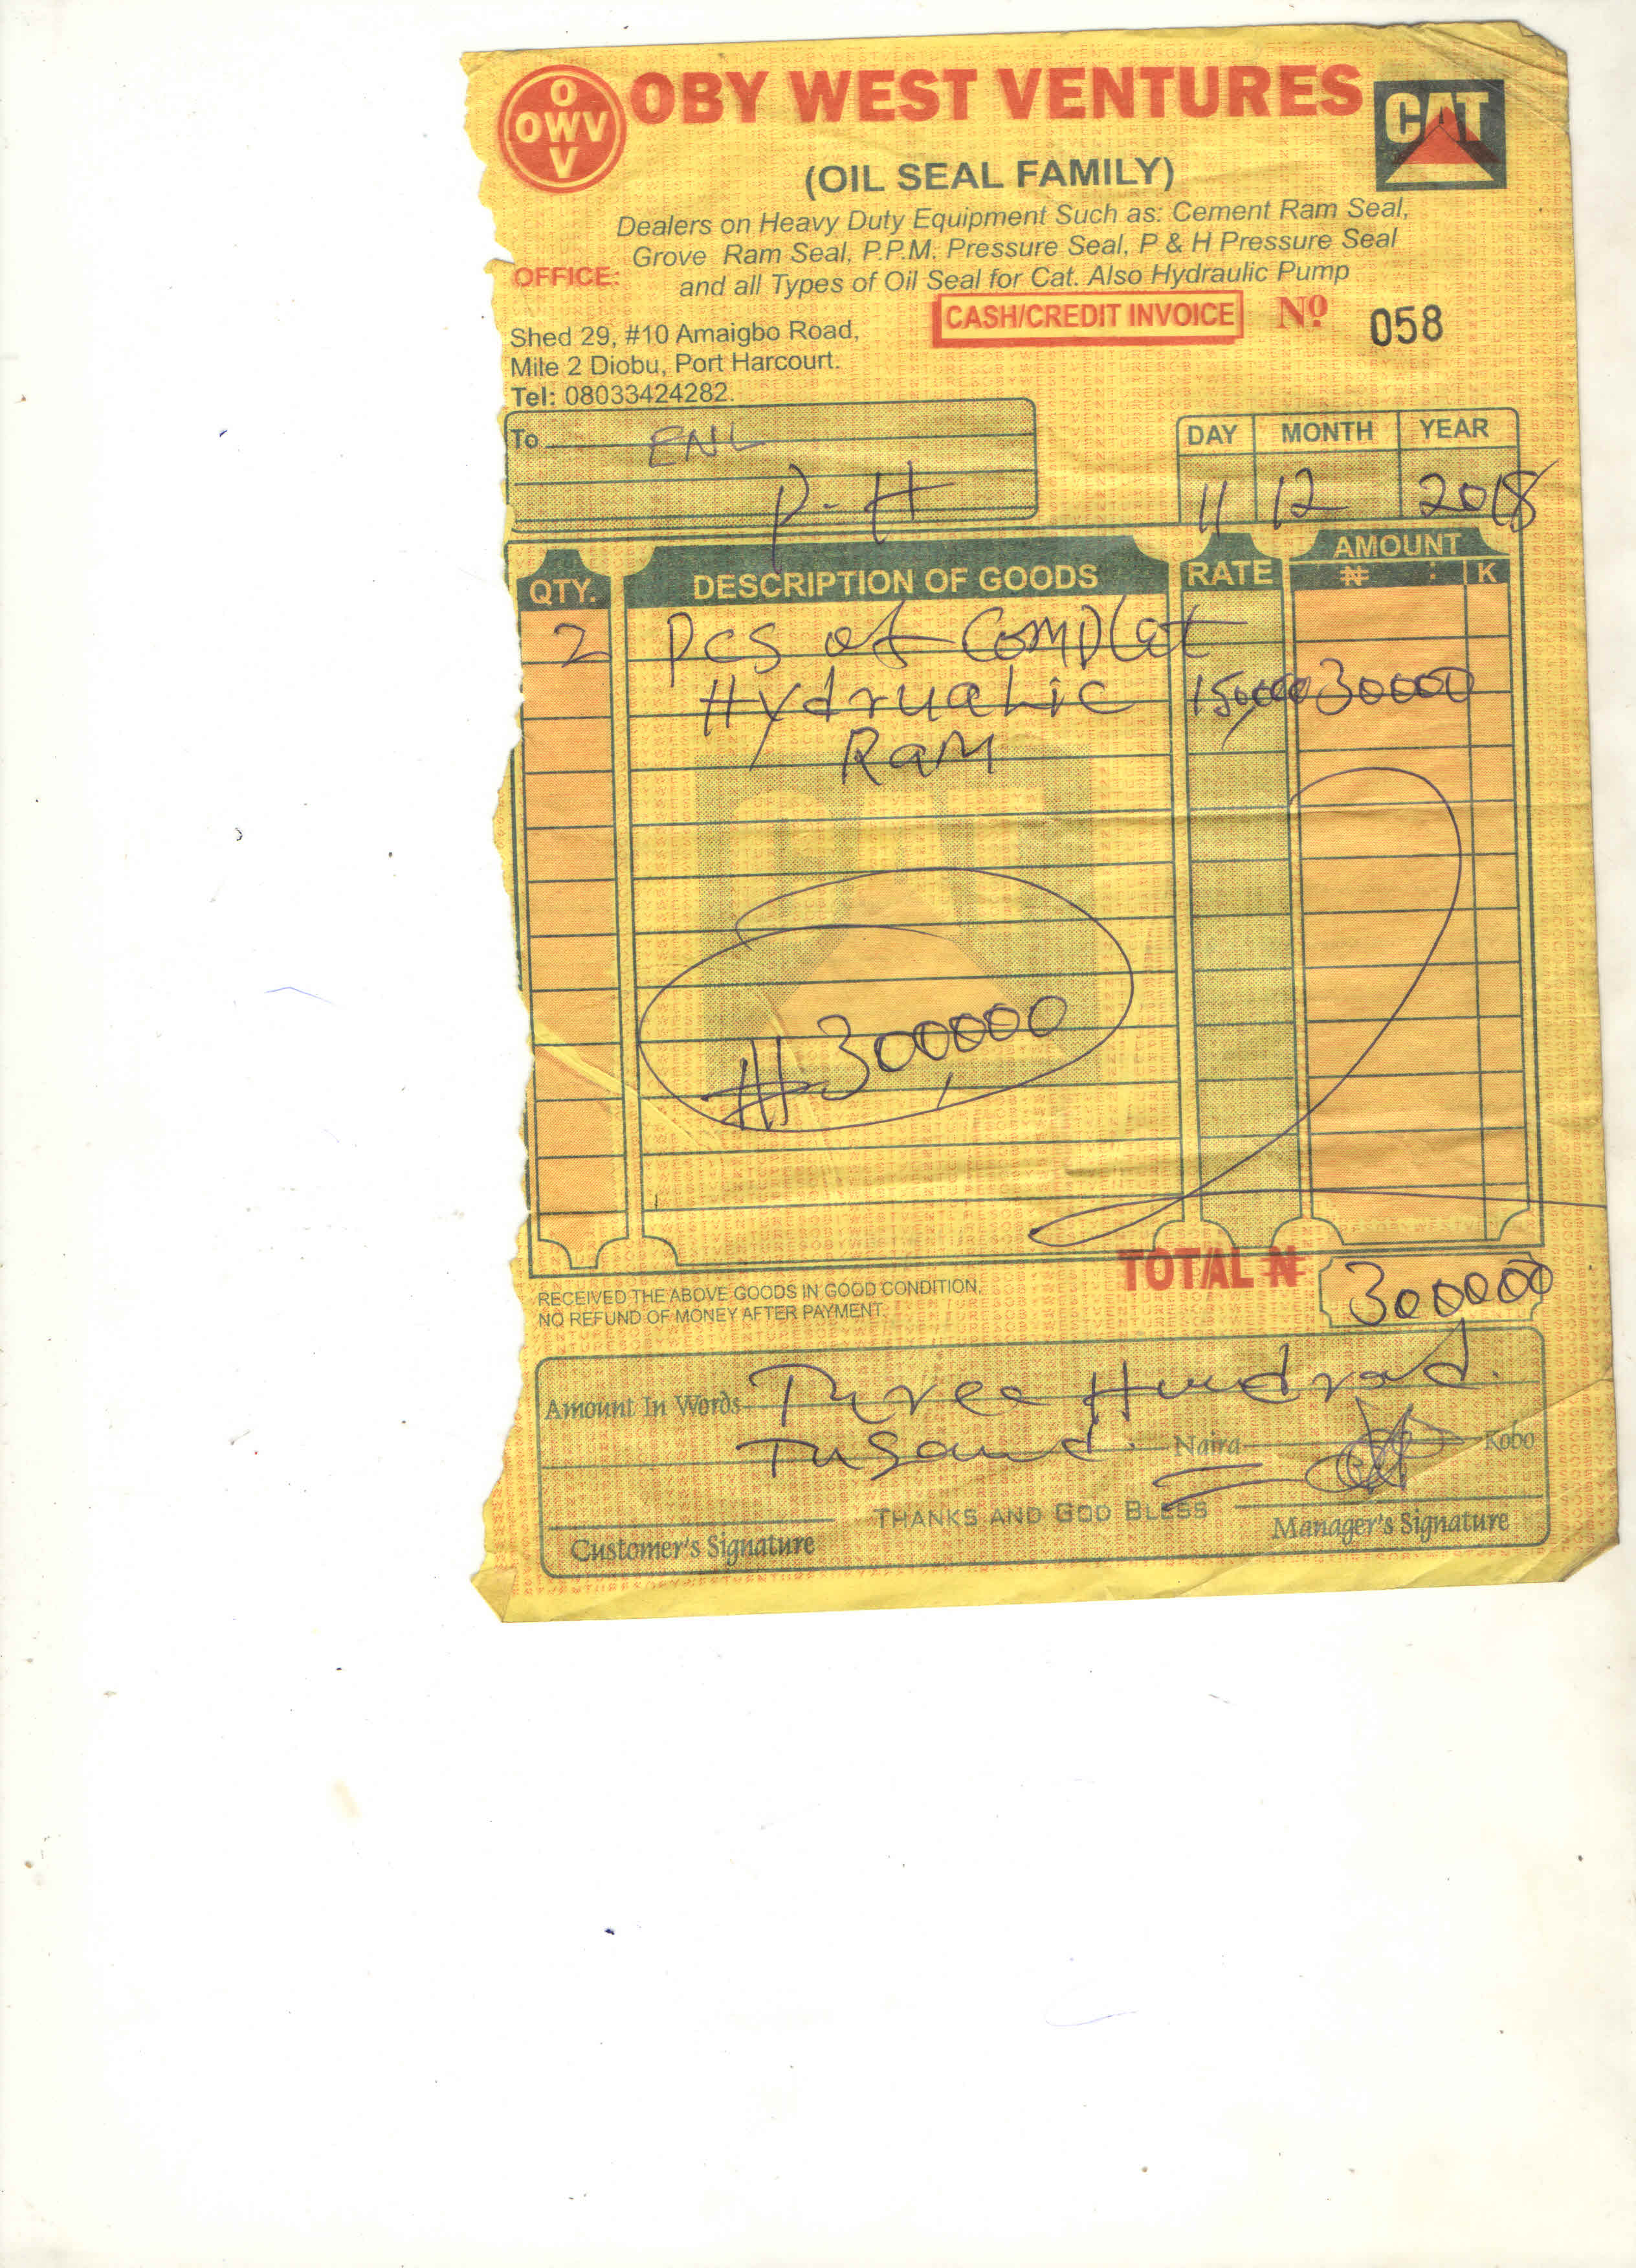 OBY WEST VENTURES
O
OWV
V
CAT
(OIL SEAL FAMILY)
Dealers on Heavy Duty Equipment Such as: Cement Ram Seal,
Grove Ram Seal, P.P.M. Pressure Seal, P & H Pressure Seal
and all Types of Oil Seal for Cat. Also Hydraulic Pump
OFFICE:
CASH/CREDIT INVOICE Nº 058
Shed 29, #10 Amaigbo Road,
Mile 2 Diobu, Port Harcourt.
Tel: 08033424282.
To ENL
P-H
DAY MONTH YEAR
11 12 2018
QTY. DESCRIPTION OF GOODS RATE AMOUNT
₦ : K
2 Pcs of Complet
Hydrualic 150,000 300000
Ram
₦300,000
TOTAL ₦ 300000
RECEIVED THE ABOVE GOODS IN GOOD CONDITION,
NO REFUND OF MONEY AFTER PAYMENT.
Amount In Words Three Hundrad
Tusand. Naira Kobo
THANKS AND GOD BLESS
Customer's Signature Manager's Signature